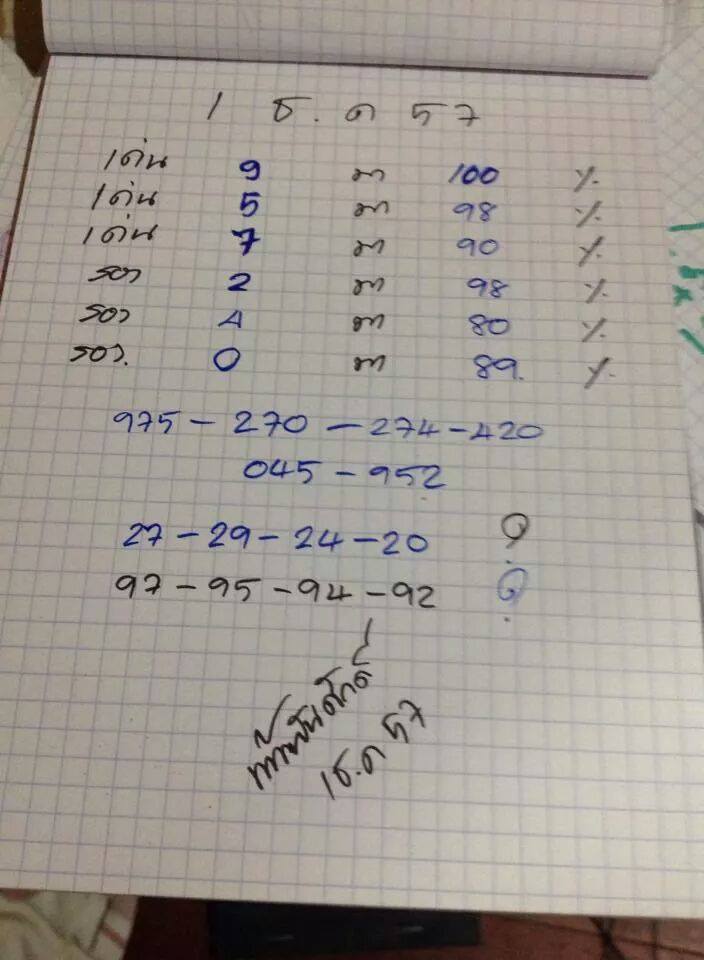 1 ธ.ค 57
เด่น 9 มา 100 %
เด่น 5 มา 98 %
เด่น 7 มา 90 %
รอง 2 มา 98 %
รอง 4 มา 80 %
รอง. 0 มา 89. %
975 - 270 - 274 - 420
045 - 952
27 - 29 - 24 - 20 ?
97 - 95 - 94 - 92 ?
1ธ.ค 57